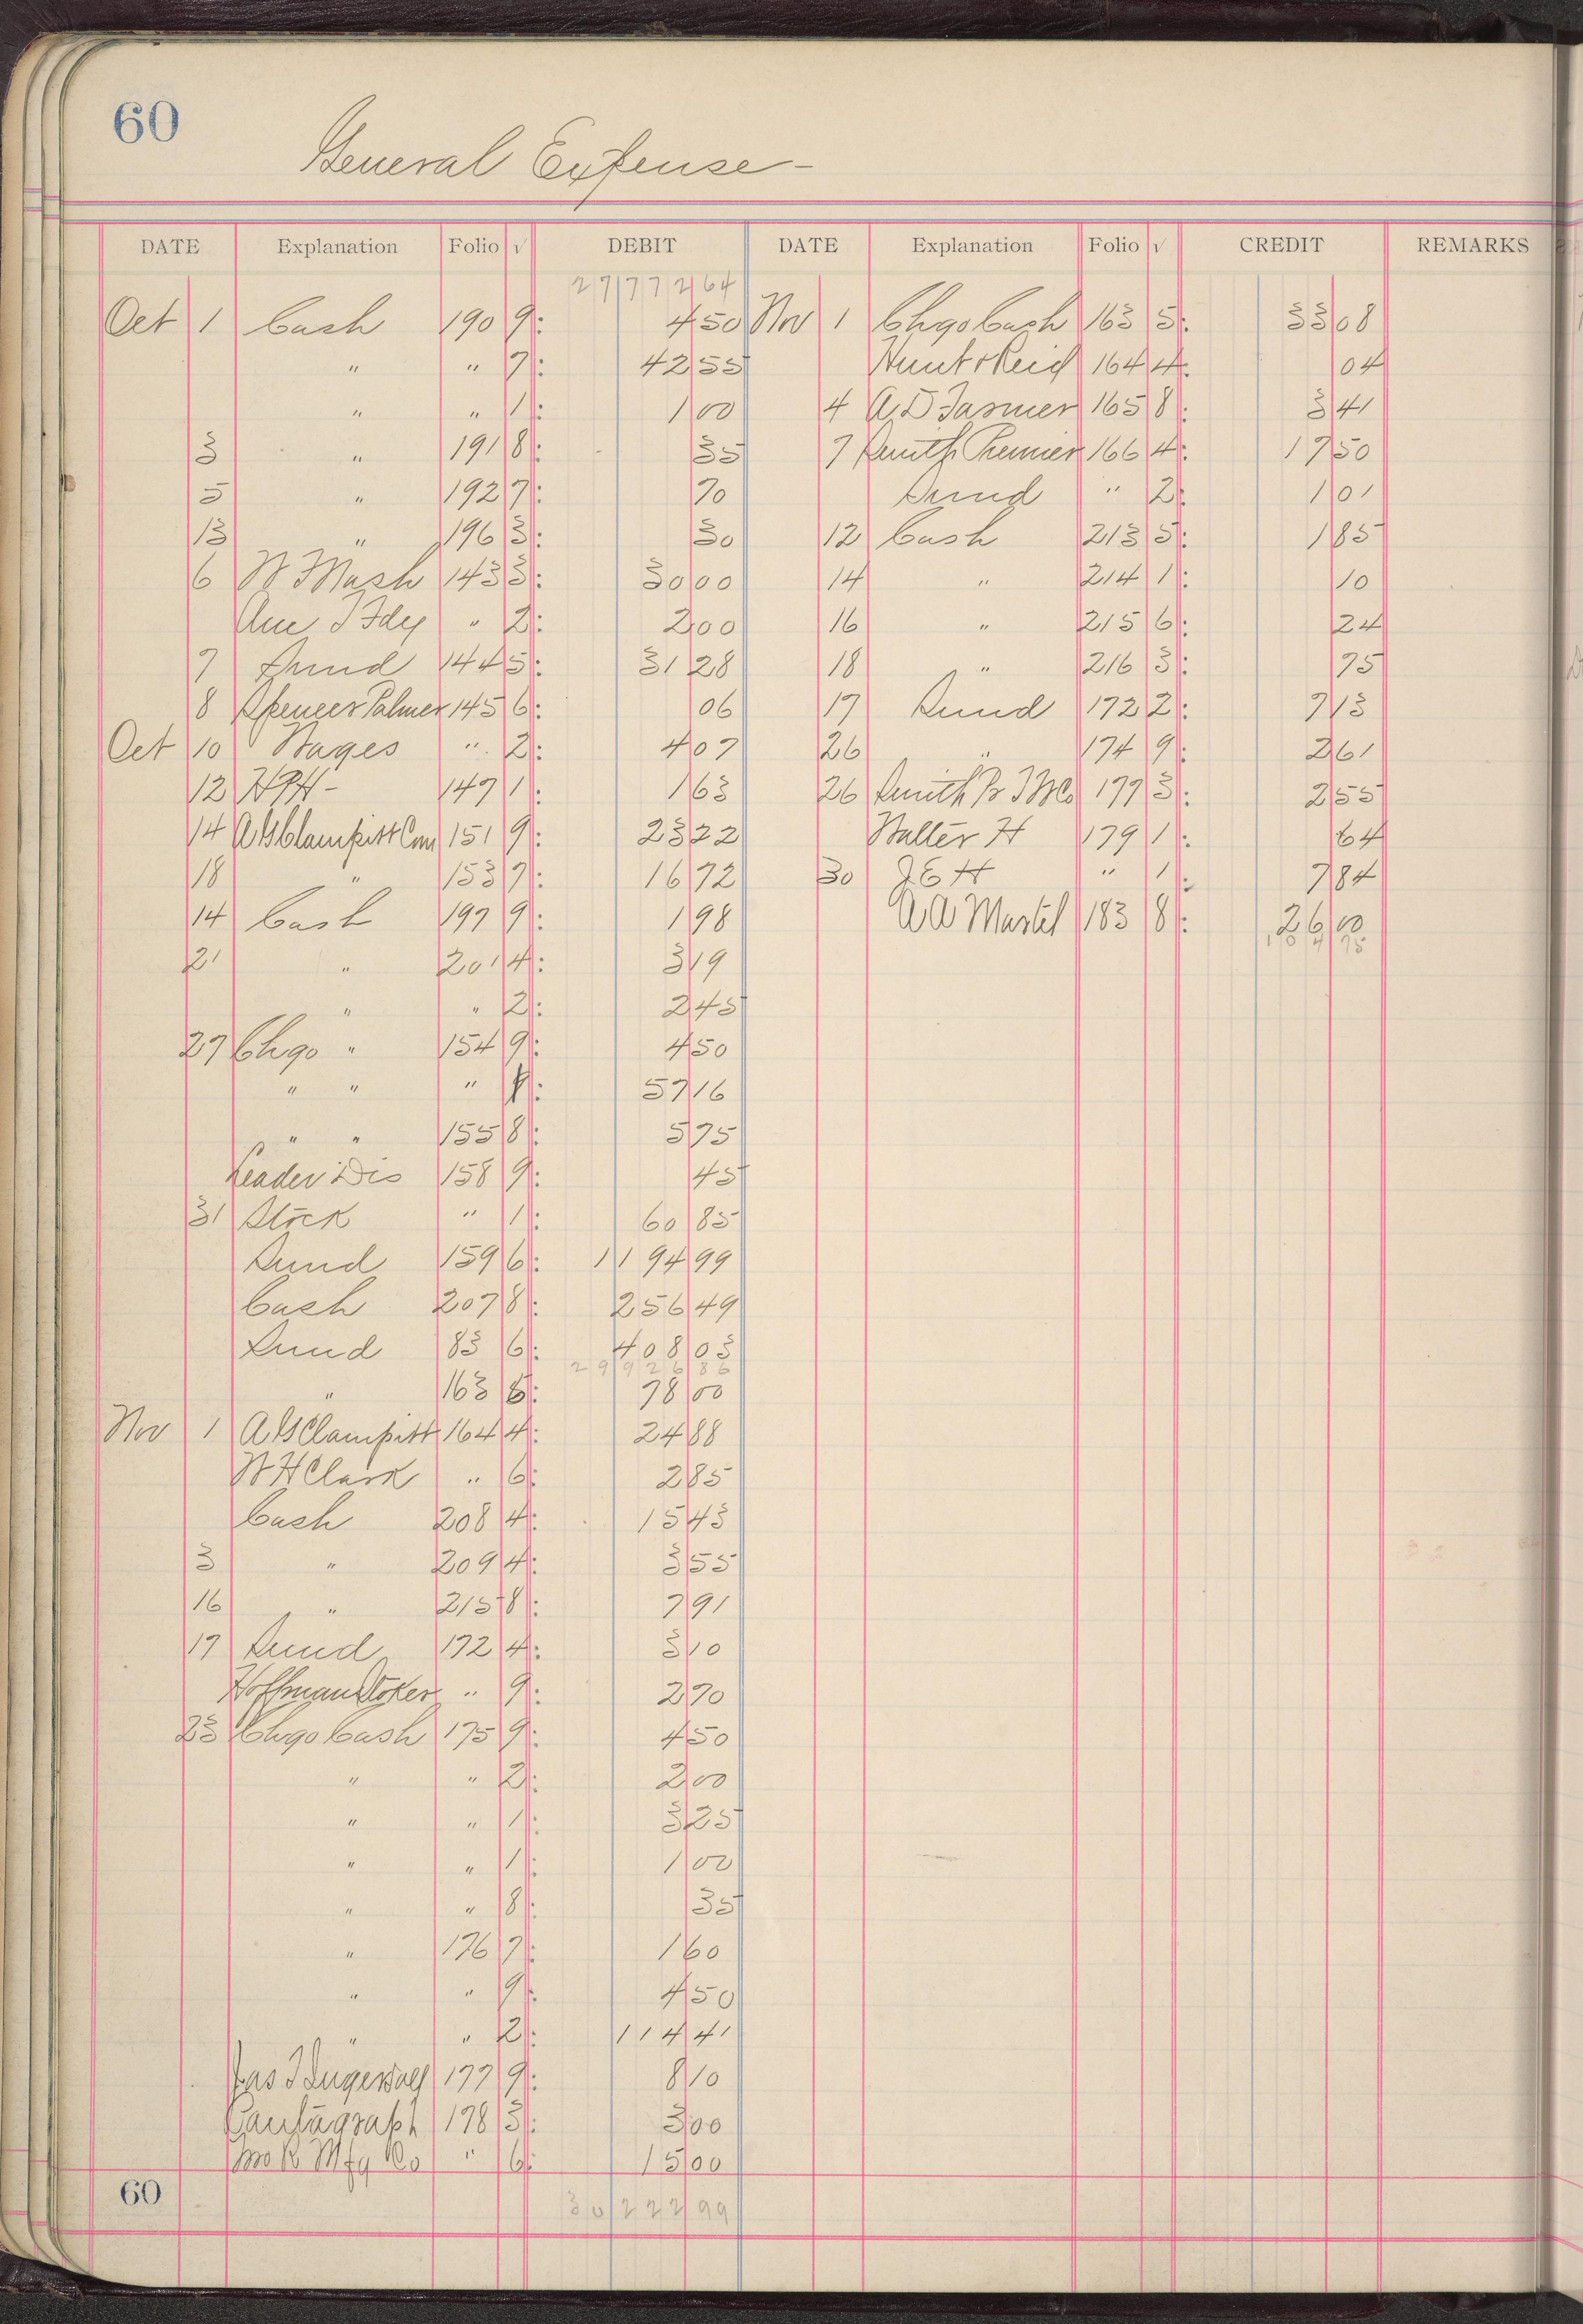 60
General Expense -
DATE Explanation Folio √ DEBIT DATE Explanation Folio √ CREDIT REMARKS
27772 64
Oct 1 Cash 190 9 4 50 Nov 1 Chgo Cash 163 5 33 08
" " 7 42 55 Hunt & Reid 164 4 04
" " 1 1 00 4 A. D Farmer 165 8 3 41
3 " 191 8 35 7 Smith Premier 166 4 17 50
5 " 192 7 70 Sund " 2 1 01
13 " 196 3 30 12 Cash 213 5 1 85
6 W T Mash 143 3 30 00 14 " 214 1 10
Am T Fdy " 2 2 00 16 " 215 6 24
7 Sund 144 5 31 28 18 " 216 3 75
8 Spencer Palmer 145 6 06 17 Sund 172 2 7 13
Oct 10 Wages " 2 4 07 26 " 174 9 2 61
12 HPH - 147 1 1 63 26 Smith P T W Co 177 3 2 55
14 A G Clampitt Com 151 9 23 22 Walter H 179 1 64
18 " 153 7 16 72 30 J E H " 1 7 84
14 Cash 197 9 1 98 A A Martel 183 8 26 00
104 75
21 " 201 4 3 19
" " 2 2 45
27 Chgo " 154 9 4 50
" " " 57 16
" " 155 8 5 75
Leader Dis 158 9 45
31 Stock " 1 60 85
Sund 159 6 1194 99
Cash 207 8 256 49
Sund 83 6 408 03
29926 86
" 163 78 00
Nov 1 A G Clampitt 164 4 24 88
W H Clark " 6 2 85
Cash 208 4 15 43
3 " 209 4 3 55
16 " 215 8 7 91
17 Sund 172 4 3 10
Hoffman Stoker " 9 2 70
23 Chgo Cash 175 9 4 50
" " 2 2 00
" " 1 3 25
" " 1 1 00
" " 8 35
" 176 7 1 60
" " 9 4 50
" " 2 114 41
Jas T 177 9 8 10
Pantagraph 178 3 3 00
Mo R Mfg Co " 6 15 00
60
30222 99